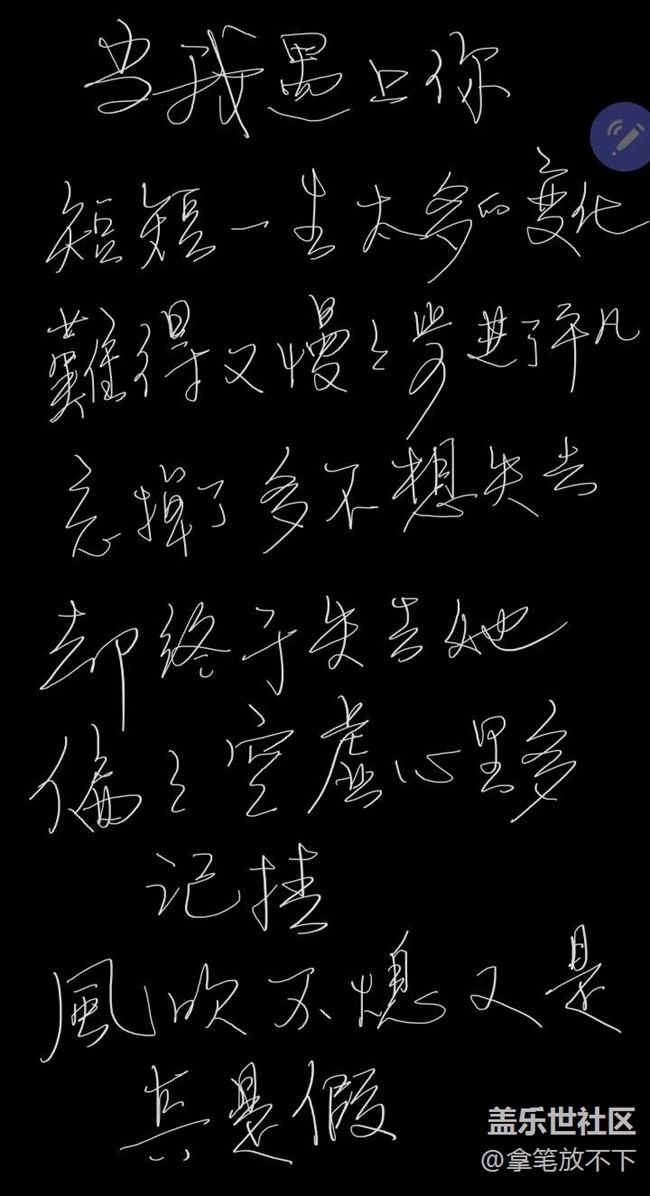 当我遇上你
短短一生太多的变化
難得又慢々步进了平凡
忘掉了多不想失去
却终于失去她
偏々空虚心里多
记挂
風吹不熄又是
真是假
盖乐世社区
@拿笔放不下